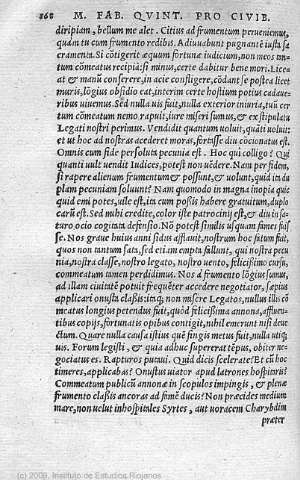 868 M. FAB. QVINT. PRO CIVIB.
diripiam, bellum me alet. Citius ad frumentum peruenimus,
quàm tu cum frumento redibis. Adiuuabunt pugnantē iusta sa
cramenta. Si cōtigerit æquum fortunæ iudicium, non meos un-
tum cōmeatus recipiā: si minus, certe dabitur bene mori. Licea
at & manū conserere, in acie confligere, cōdant se postea licet
muris, lōgius obsidio eat, interim certe hostium potius cadaue-
ribus uiuemus. Sed nulla uis fuit, nulla exterior iniuria, tuū cer
tum cōmeatum nemo rapuit, iure miseri sumus, & ex stipulatu
Legati nostri perimus. Vendidit quantum uoluit, quāti uoluit:
et ut hoc ad nostras accederet moras, fortisse diu cōcionatus est.
Omnis cum fide persoluta pecunia est. Hoc qui colligo? Qui
quanti uult uendit Iudices, potest nō uēdere. Nam per fidem,
si rapere alienum frumentum & possunt, & uolunt, quid in du
plam pecuniam soluunt? Nam quomodo in magna inopia quic
quid emi potest, uile est, ita cum possis habere gratuitum, duplo
carū est. Sed mihi credite, color iste patrocinij est, & diu in sa-
turo, ocio cogitata defensio. Nō potest similis usquam fames fuis
se. Nos graue huius anni sidus afflauit, nostrum hoc fuit fatū,
quos non tantum sata, sed etiam empta fallunt, qui nostra pecu
nia, nostra classe, nostro legato, nostro uento, felicissimo cursu,
commeatum tamen perdidimus. Nos à frumento lōgius sumus,
ad illam ciuitatē potuit frequēter accedere negotiator, sæpius
applicari onusta classis: itaq; non misere Legatos, nullus illis cō
meatus longius petendus fuit, quòd felicissima annona, affluen-
tibus copijs, fortunatis opibus contigit, nihil emerunt nisi deue
ctum. Quare nulla causa istius quē fingis metus fuit, nulla utiq;
uis. Forum legisti, & quia adhuc supererat tēpus, obiter ne-
gociatus es. Rapturos putaui. Quid dicis scelerate? Et cū hoc
timeres, applicabas? Onustus uiator apud latrones hospitaris?
Commeatum publicū annonæ in scopulos impingis, & plenæ
frumento classis ancoras ad famē ducis? Non præcides medium
mare, non uelut inhospitales Syrtes, aut uoracem Charybdim
præter
(c) 2009, Instituto de Estudios Riojanos